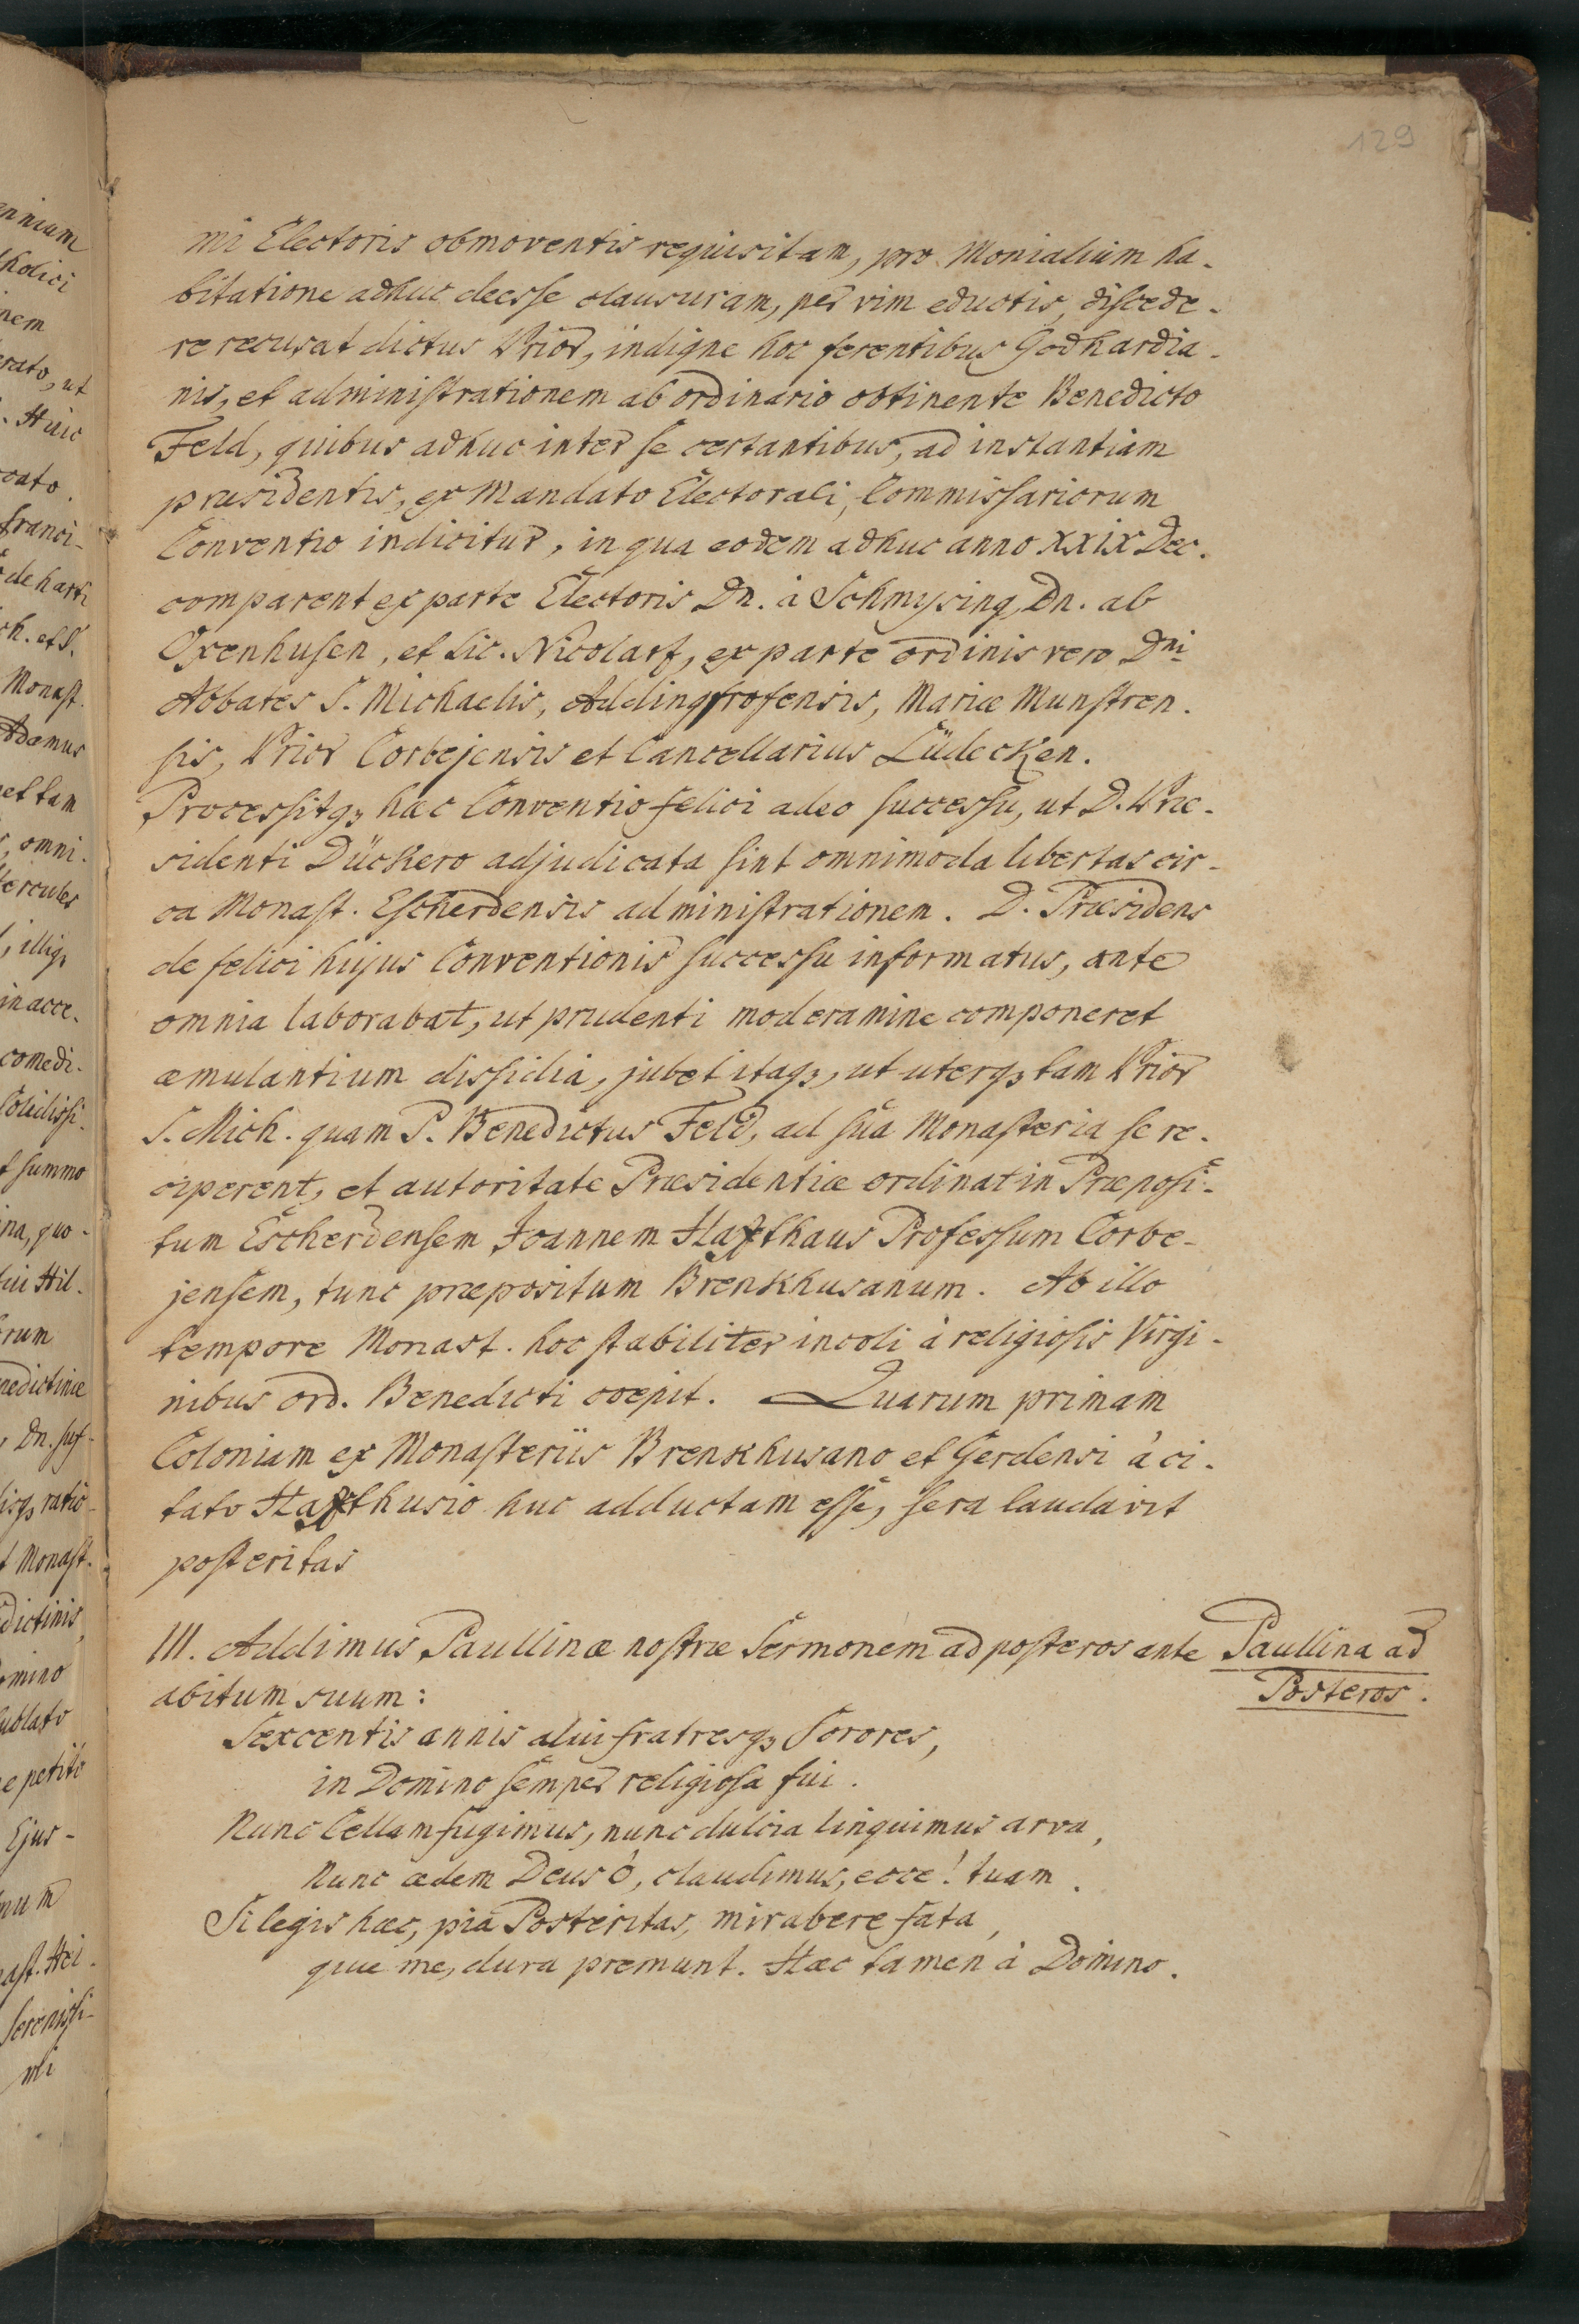 129
mi Electoris obmoventis requisitam, pro Monialium ha-
bitatione adhuc deesse clausuram, per vim eductis, discede-
re recusat dictus Prior, indigne hoc ferentibus Godhardia-
nis, et administrationem ab ordinario obtinente Benedicto
Feld, quibus adhuc inter se certantibus, ad instantiam
præsidentis, ex Mandato Electorali, Commissariorum
Conventio indicitur, in qua eodem adhuc anno XXIX Dec.
comparent ex parte Electoris Dn. à Schmysing, Dn. ab
Oxenhusen, et Lic. Nicolarts, ex parte ordinis vero Dni
Abbates S. Michaelis, Mariæ Munstren-
sis, Prior Corbejensis et Cancellarius Lüdecken.
Processitqz hæc Conventio felici adeo successu, ut D. Præ-
sidenti Dückero adjudicata sint omnimoda libertas cir-
ca Monast. Escherdensis administrationem. D. Præsidens
de felici hujus Conventionis successu informatus, ante
omnia laborabat, ut prudenti moderamine componeret
æmulantium dissidia, jubet itaqz, ut uterqz tam Prior
S. Mich. quam P. Benedictus Feld, ad sua Monasteria se re-
ciperent, et autoritate Præsidentiæ ordinat in Præposi-
tum Escherdensem Joannem Haxthaus Professum Corbe-
jensem, tunc præpositum Brenkhusanum. Ab illo
tempore Monast. hoc stabiliter incoli à religiosis Virgi-
nibus ord. Benedicti coepit. Quarum primam
Coloniam ex Monasteriis Brenkhusano et Gerdensi à ci-
tato Haxthusio huc adductam esse, sera laudavit
posteritas
III. Addimus Paullinæ nostræ Sermonem ad posteros ante
abitum suum:
Paullina ad
Posteros.
Sexcentis annis alui fratresqz Sorores,
in Domino semper religiosa fui.
Nunc Cellam fugimus, nunc dulcia linquimus arva,
Nunc ædem Deus ô, claudimus, ecce! tuam.
Si legis hæc, pia Posteritas, mirabere fata,
quæ me, dura premunt. Hæc tamen à Domino.